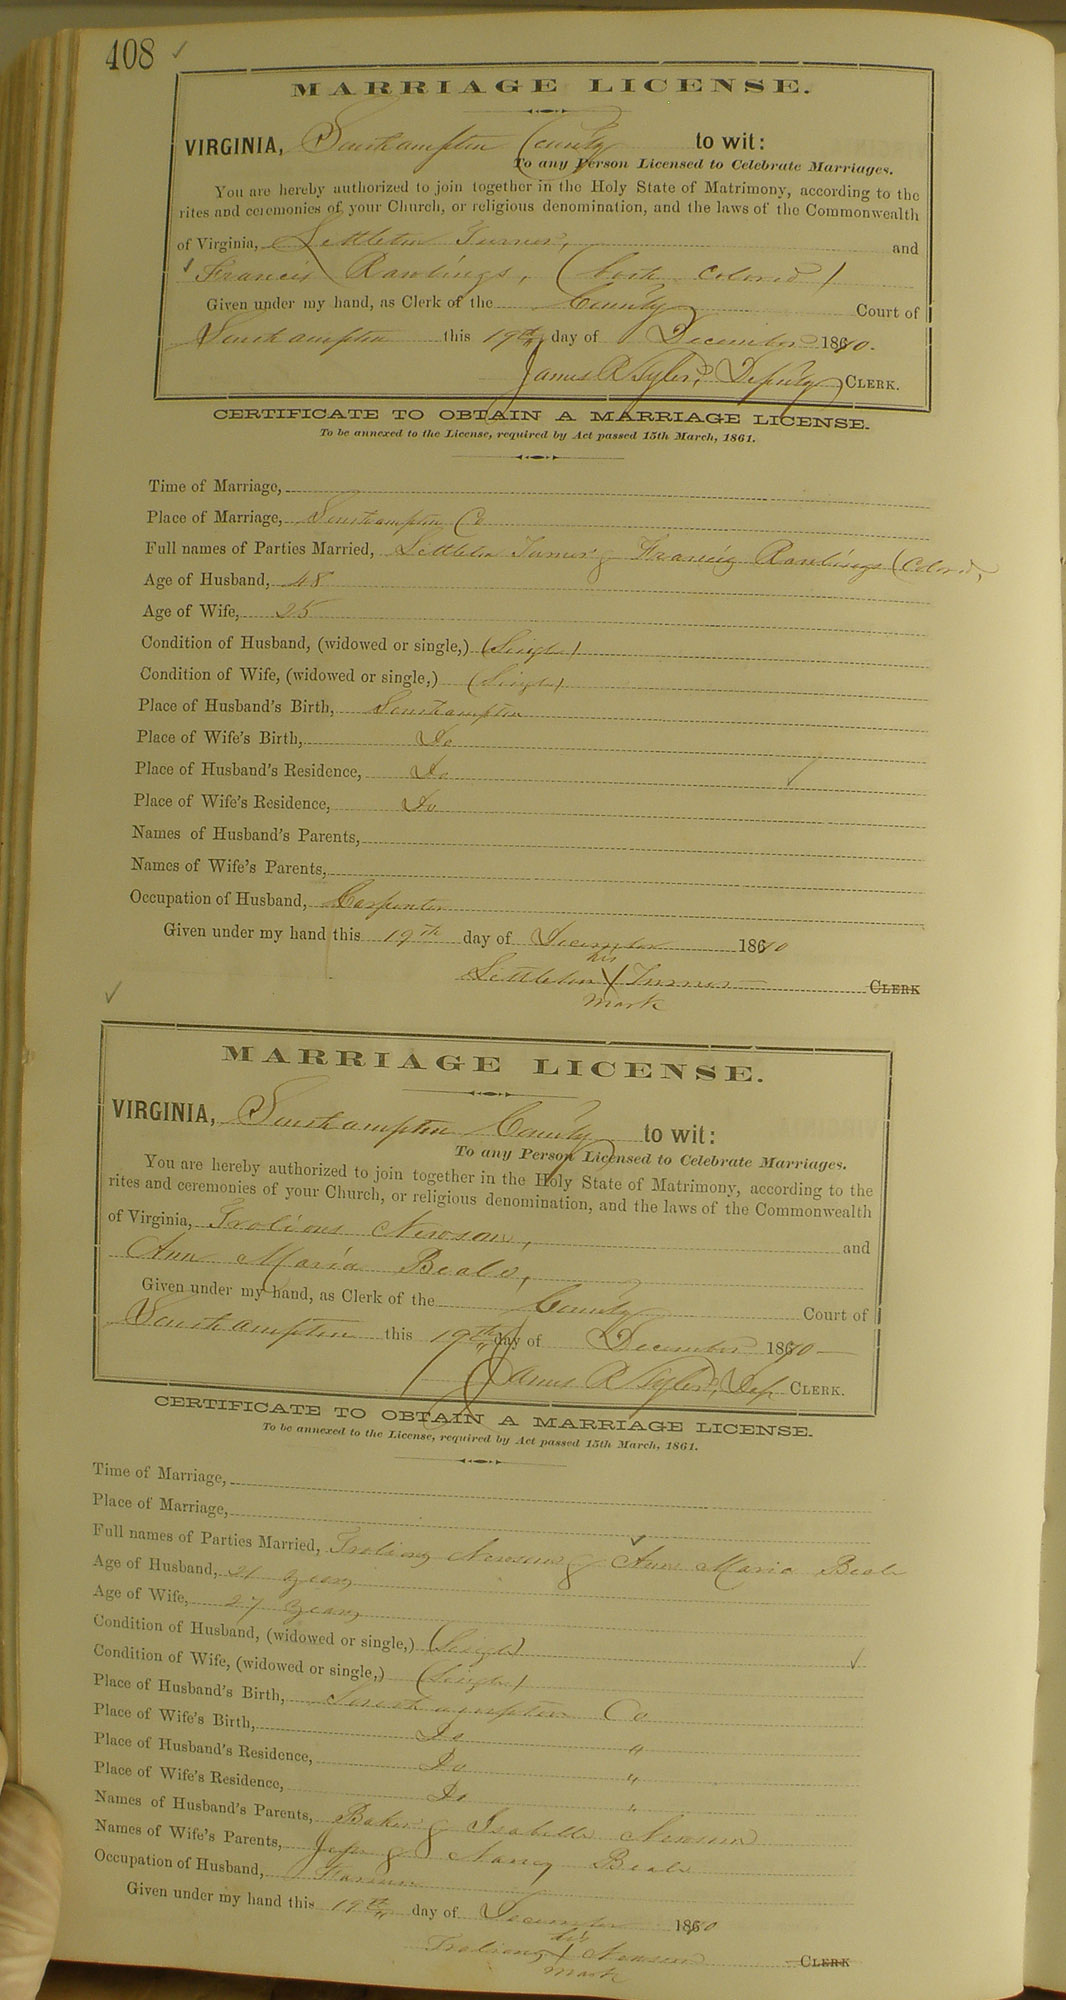 408 ✓
MARRIAGE LICENSE.
VIRGINIA, Southampton County to wit:
To any Person Licensed to Celebrate Marriages.
You are hereby authorized to join together in the Holy State of Matrimony, according to the
rites and ceremonies of your Church, or religious denomination, and the laws of the Commonwealth
of Virginia, Littleton Turner, and
✓ Francis Rawlings, (both colored)
Given under my hand, as Clerk of the County Court of
Southampton this 19th day of December 1870.
James R Tyler, Deputy CLERK.
CERTIFICATE TO OBTAIN A MARRIAGE LICENSE.
To be annexed to the License, required by Act passed 15th March, 1861.
Time of Marriage,
Place of Marriage, Southampton Co
Full names of Parties Married, Littleton Turner & Francis Rawlings (Colored)
Age of Husband, 48
Age of Wife, 25
Condition of Husband, (widowed or single,) (Single)
Condition of Wife, (widowed or single,) (Single)
Place of Husband's Birth, Southampton
Place of Wife's Birth, Do
Place of Husband's Residence, Do ✓
Place of Wife's Residence, Do
Names of Husband's Parents,
Names of Wife's Parents,
Occupation of Husband, Carpenter
Given under my hand this 19th day of December 1870
his
Littleton X Turner CLERK
mark
✓
MARRIAGE LICENSE.
VIRGINIA, Southampton County to wit:
To any Person Licensed to Celebrate Marriages.
You are hereby authorized to join together in the Holy State of Matrimony, according to the
rites and ceremonies of your Church, or religious denomination, and the laws of the Commonwealth
of Virginia, Newsom, and
Ann Maria Beale,
Given under my hand, as Clerk of the County Court of
Southampton this 19th day of December 1870
James R Tyler, Dep CLERK.
CERTIFICATE TO OBTAIN A MARRIAGE LICENSE.
To be annexed to the License, required by Act passed 15th March, 1861.
Time of Marriage,
Place of Marriage,
Full names of Parties Married, Newsom & ✓ Ann Maria Beale
Age of Husband, 21 years
Age of Wife, 27 years
Condition of Husband, (widowed or single,) (Single)
Condition of Wife, (widowed or single,) (Single) ✓
Place of Husband's Birth, Southampton Co
Place of Wife's Birth, Do "
Place of Husband's Residence, Do "
Place of Wife's Residence, Do "
Names of Husband's Parents, Baker & Isabella Newsom
Names of Wife's Parents, & Nancy Beale
Occupation of Husband, Farmer
Given under my hand this 19th day of December 1870
his
X Newsom CLERK
mark